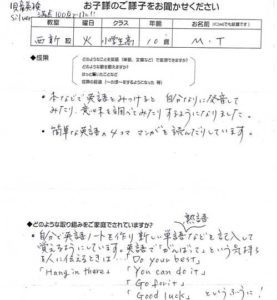 児童英検
Silver 満点 100点でした!!
お子様のご様子をお聞かせください
教室 曜日 クラス 年齢 お名前
西新 校 火 小学生高 10歳 M・T
◆成果
・本などで英語をみつけると 自分なりに発音して
みたり、意味を調べてみたりするようになりました。
・簡単な英語の4コマ マンガを読んだりしています。
◆どのような取り組みをご家庭でされていますか?
熟語
・自分で英語ノートを作り 新しい単語などを記入して
覚えるようにしています。英語で「がんばって」という気持ち
を人に伝えるときは…「Do your best」
「Hang in there」「You can do it」
「Go for it」
「Good luck」というふうに!